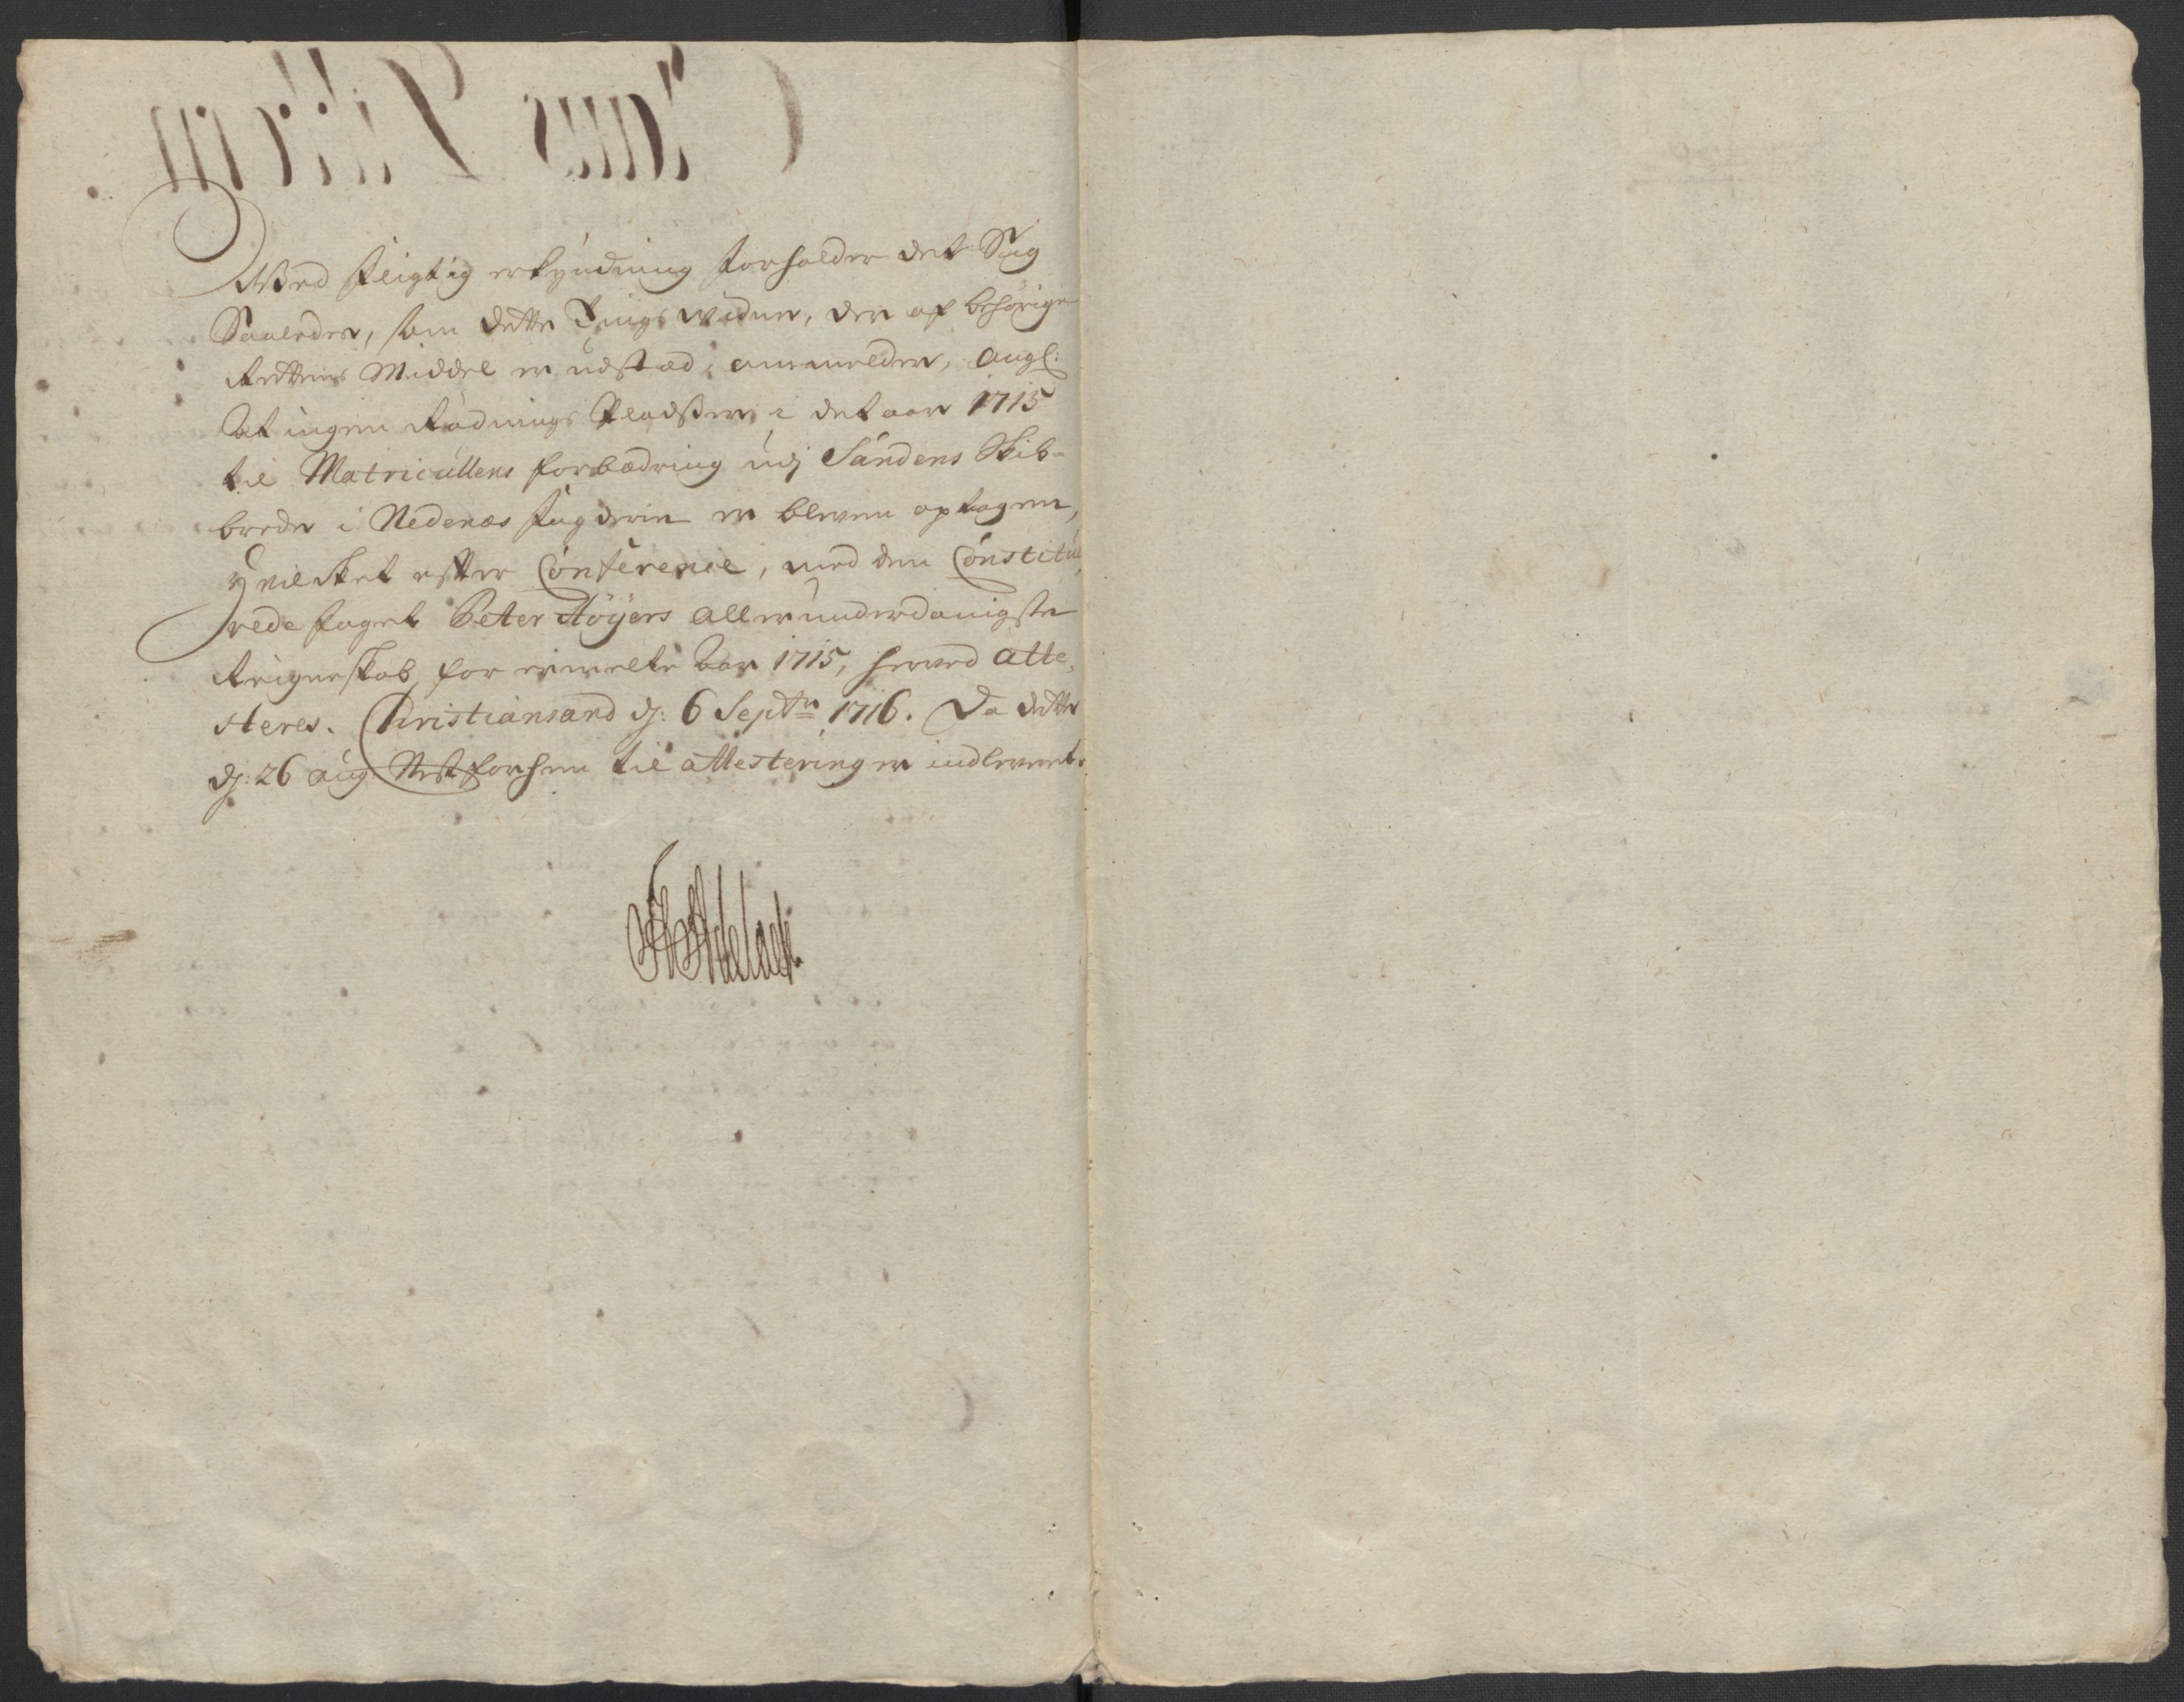 Wed fligtig erkyndning forholder det Sig
Saaledes, som dette Tings widne, der af behörige
Rettens Middel er udstæd, ommelder, angl:
At ingen Rödnings Pladser i det aar 1715
til Matricullens forbædring udj Sandens Skib-
brede i Nedenæs fugderie er bleven optagen,
hvilcket efter Conference, med den Constitu,
rede foget Peter Höyers allerunderdanigste
Reigneskab for ermelte Aar 1715, herved atte,
steres. Christiansand dj: 6 Septr: 1716. Da dette
dj: 26 aug: Nestforhen til attestering er indleveret.